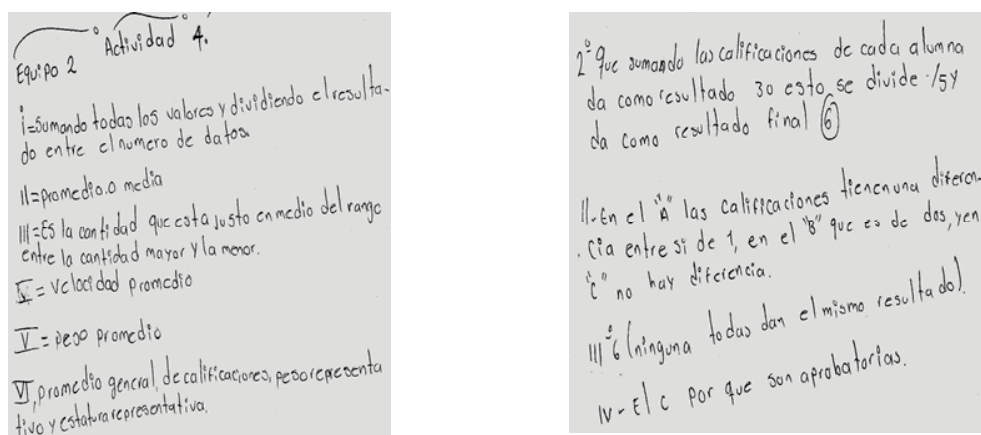 Actividad 4.
Equipo 2
i=sumando todos los valores y dividiendo el resulta-
do entre el numero de datos.
II=promedio o media
III=Es la cantidad que esta justo en medio del rango
entre la cantidad mayor y la menor.
IV=Velocidad promedio
V=peso promedio
VI, promedio general, de calificaciones, peso representa
tivo y estatura representativa.
2° que sumando las calificaciones de cada alumna
da como resultado 30 esto se divide /5 y
da como resultado final 6
II-En el "A" las calificaciones tienen una diferen-
cia entre si de 1, en el "B" que es de dos, y en
"C" no hay diferencia.
III° 6 (ninguna todas dan el mismo resultado).
IV-El c por que son aprobatorias.